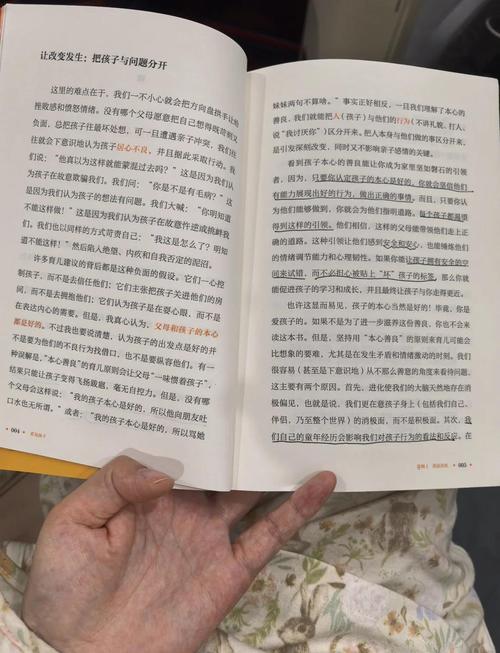 让改变发生：把孩子与问题分开
这里的难点在于，我们一不小心就会把方向盘拱手让给
挫败感和愤怒情绪。没有哪个父母愿意把自己想得既苛刻又
负面，总把孩子往最坏处想，可一旦遭遇亲子冲突，我们往
往就会下意识地认为孩子居心不良，并且据此采取行动。我
们说：“他真以为这样就能蒙混过去吗？”这是因为我们认
为孩子在故意欺骗我们。我们问：“你是不是有毛病？”这
是因为我们认为孩子的想法有问题。我们大喊：“你明知道
不能这样做！”这是因为我们认为孩子在故意忤逆或挑衅我
们。我们也以同样的方式苛责自己：“我这是怎么了？明知
道不能这样！”然后陷入绝望、内疚和自我否定的泥沼。
许多育儿建议的背后都是这种负面的假设。它们一心控
制孩子，而不是去信任他们；它们主张把孩子关进他们的房
间，而不是去拥抱他们；它们认为孩子在耍心眼，而不是
在表达内心的需要。但是，我真心认为，父母和孩子的本心
都是好的。不过我也要说清楚，认为孩子的出发点是好的并
不是要为他们的不良行为找借口，也不是要纵容他们。有一
种误解是，“本心善良”的育儿原则会让父母“一味惯着孩子”，
结果只能让孩子变得飞扬跋扈，毫无自控力。但是，没有哪
个父母会这样说：“我的孩子本心是好的，所以他向朋友吐
口水也无所谓。”或者：“我的孩子本心是好的，所以骂她
004 看见孩子
妹妹两句不算啥。”事实正好相反，一旦我们理解了本心的
善良，我们就能把人（孩子）与他们的行为（不讲礼貌、打人、
说“我讨厌你”）区分开来。把人本身与他们做的事区分开来，
是引发深刻改变、同时又不影响亲子感情的关键。
看到孩子本心的善良能让你成为家里坚如磐石的引领
者，因为，只要你认定孩子的本心是好的，你就会坚信他们
有能力展现出好的行为，做出正确的事情。而且，只要你认
为他们能够做到，你就会为他们指明道路。每个孩子都渴望
得到这样的引领。他们相信，这样的父母能带领他们走上正
确的道路。这种引领让他们感到安念和安心，也能锤炼他们
的情绪调节能力和心理韧性。如果你能让孩子拥有安全的空
间来试错，而不必担心被贴上“坏”孩子的标签，那么你就
能促进孩子的学习和成长，并且最终让孩子与你走得更近。
也许这显而易见，孩子的本心当然是好的！毕竟，你是
爱孩子的。如果不是为了进一步滋养这份善良，你也不会来
读这本书。但是，坚持用“本心善良”的原则来育儿可能会
比想象的要难，尤其是在发生矛盾和情绪激动的时刻。我们
很容易（甚至是下意识地）从不那么善意的角度来看待问题，
这主要有两个原因。首先，进化使我们的大脑天然地存在消
极偏见，也就是说，我们更在意孩子身上（包括我们自己、
伴侣，乃至整个世界）的消极面，而不是积极面。其次，我
们自己的童年经历会影响我们对孩子行为的看法和反应。在
005